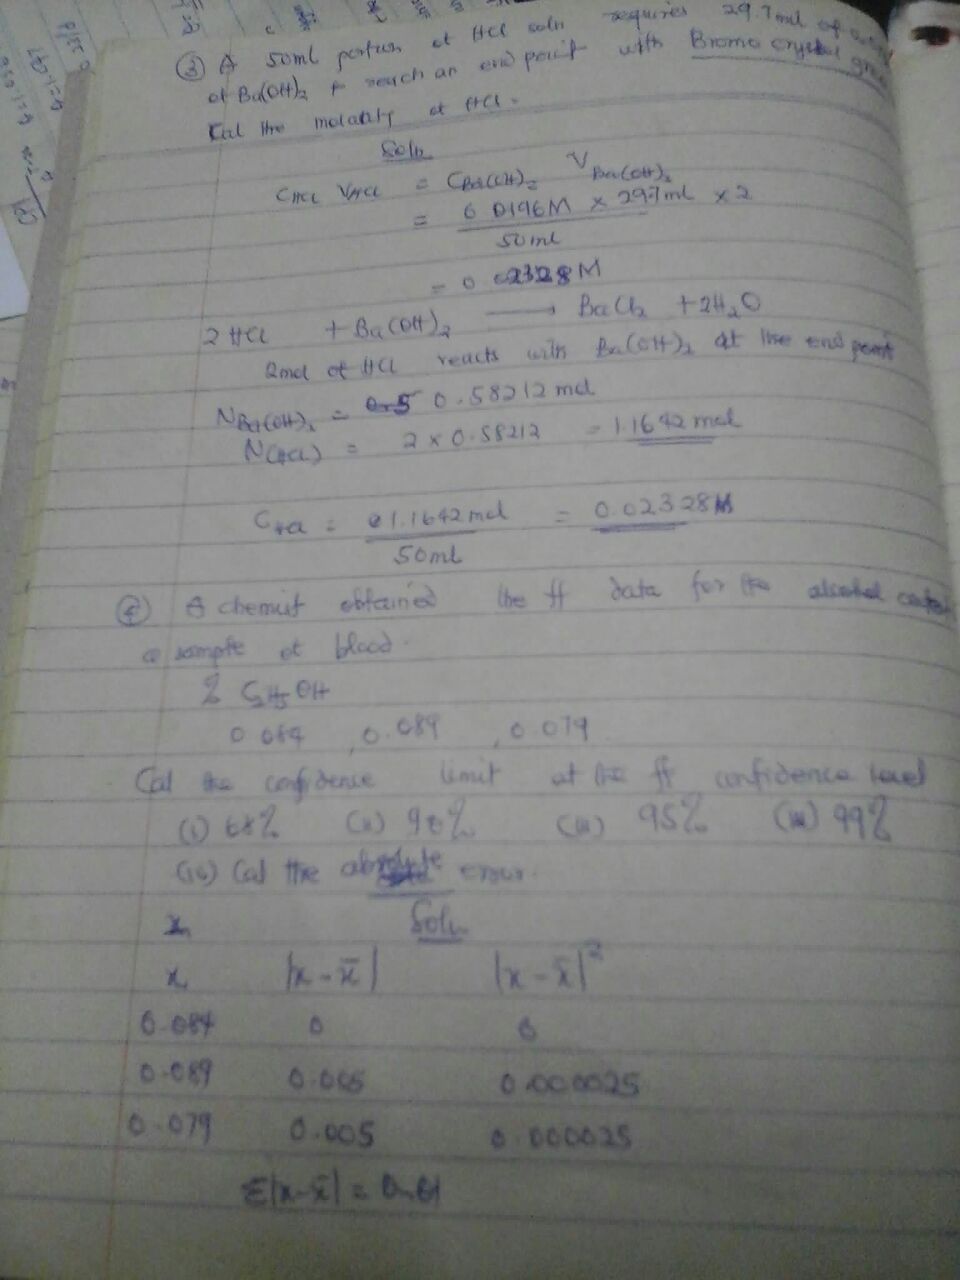 ③ A 50ml portion of HCl soln requires 29.7ml of
of Ba(OH)₂ to reach an end point with Bromo crystal green
Cal the molarity of HCl.
Soln
C HCl V HCl = C Ba(OH)₂ V Ba(OH)₂
= 0.0196M × 29.7ml × 2
50ml
= 0.02328M
2HCl + Ba(OH)₂ ⟶ BaCl₂ + 2H₂O
2mol of HCl reacts with Ba(OH)₂ at the end point
N Ba(OH)₂ = 0.58212 mol
N(HCl) = 2 × 0.58212 = 1.1642 mol
C HCl = 1.1642 mol = 0.02328M
50ml
A chemist obtained the ff data for the alcohol content
a sample of blood.
% C₂H₅OH
0.084, 0.089, 0.079
Cal the confidence limit at the ff confidence level
(i) 68% (ii) 90% (iii) 95% (iii) 99%
(iv) Cal the absolute error.
Soln
x |x - x̄| |x - x̄|²
0.084 0 0
0.089 0.005 0.000025
0.079 0.005 0.000025
Σ|x-x̄| = 0.01